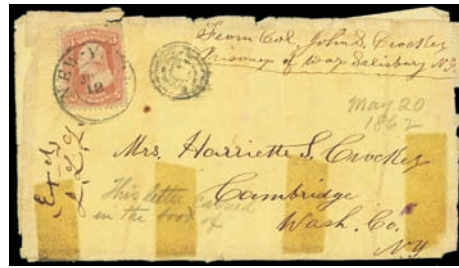 NEW-Y
12
From Col. John S. Crocker
Prisoner of war Salisbury N.C.
May 20
1862
Mrs. Harriette S. Crocker
Cambridge
Wash. Co.
N.Y
This letter carried
in the boot of